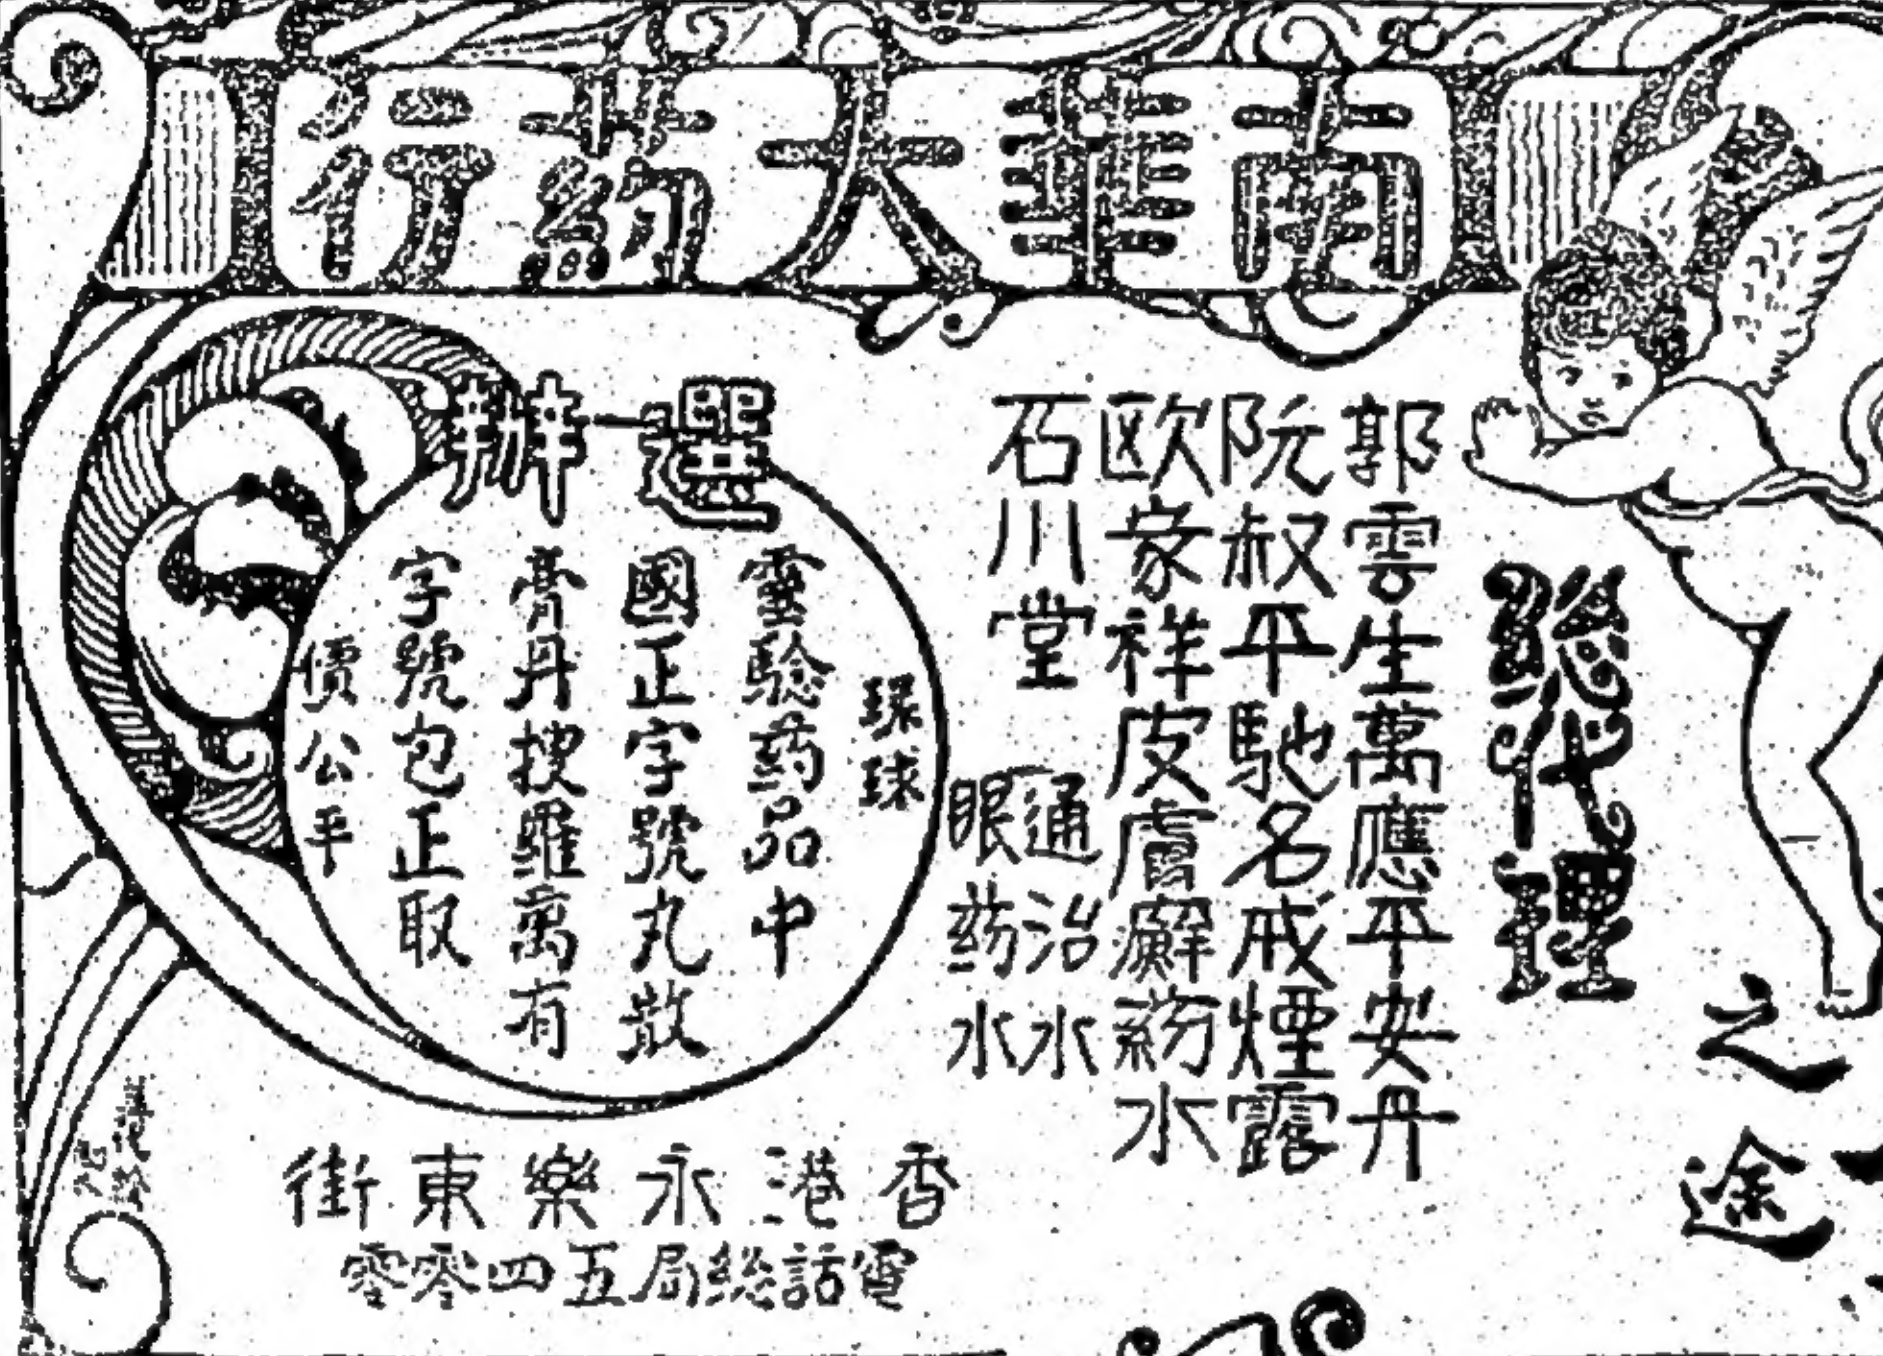 南華大药行
總代理
郭雲生萬應平安丹
阮叔平馳名戒煙露
欧家祥皮膚癬药水
石川堂
通治水
眼药水
選办
環球
靈驗药品中
國正字號丸散
膏丹搜羅萬有
字號包正取
價公平
香港永樂東街
電話總局五四零零
之途